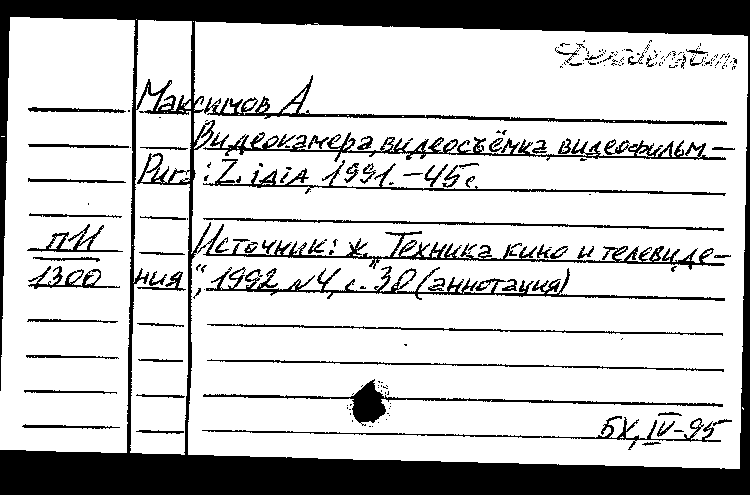 Desideratum
Максимов, А.
Видеокамера, видеосъёмка, видеофильм. —
Рига: Z. iдiА, 1991. – 45 с.
пИ
1300
Источник: ж. „Техника кино и телевиде-
ния“, 1992, №4, с. 30 (аннотация)
БХ, IV-95